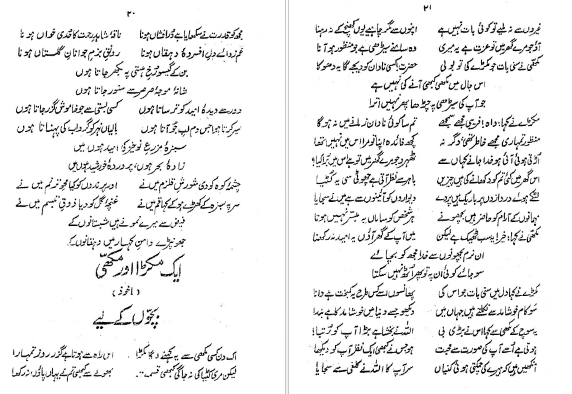 ۲۰
مجھ کو قدرت نے سکھایا ہے درافشاں ہونا ناقۂ شاہدِ رحمت کا حُدی خواں ہونا
غم زدائے دلِ افسردۂ دہقاں ہونا رونقِ بزمِ جوانانِ گلستاں ہونا
بن کے گیسو رخِ ہستی پہ بکھر جاتا ہوں
شانۂ موجۂ صرصر سے سنور جاتا ہوں
دور سے دیدۂ امید کو ترساتا ہوں کسی بستی سے جو خاموش گزر جاتا ہوں
سیر کرتا ہوا جس دم لبِ جو آتا ہوں بالیاں نہر کو گرداب کی پہناتا ہوں
سبزۂ مزرعِ نوخیز کی امید ہوں میں
زادۂ بحر ہوں، پروردۂ خورشید ہوں میں
چشمۂ کوہ کو دی شورشِ قلزم میں نے اور پرندوں کو کیا محوِ ترنم میں نے
سر پہ سبزہ کے کھڑے ہو کے کہا قم میں نے غنچۂ گل کو دیا ذوقِ تبسم میں نے
فیض سے میرے نمونے ہیں شبستانوں کے
جھونپڑے دامنِ کہسار میں دہقانوں کے
ایک مکڑا اور مکھی
(ماخوذ)
بچوں کے لیے
اک دن کسی مکھی سے یہ کہنے لگا مکڑا اس راہ سے ہوتا ہے گزر روز تمہارا
لیکن مری کٹیا کی نہ جاگی کبھی قسمت بھولے سے کبھی تم نے یہاں پاؤں نہ رکھا
۲۱
غیروں سے نہ ملیے تو کوئی بات نہیں ہے اپنوں سے مگر چاہیے یوں کھنچ کے نہ رہنا
آؤ جو مرے گھر میں تو عزت ہے یہ میری وہ سامنے سیڑھی ہے جو منظور ہو آنا
مکھی نے سنی بات جو مکڑے کی تو بولی حضرت! کسی نادان کو دیجے گا یہ دھوکا
اس جال میں مکھی کبھی آنے کی نہیں ہے
جو آپ کی سیڑھی پہ چڑھا پھر نہیں اترا
مکڑے نے کہا واہ! فریبی مجھے سمجھے تم سا کوئی نادان زمانے میں نہ ہو گا
منظور تمہاری مجھے خاطر تھی وگرنہ کچھ فائدہ اپنا تو مرا اس میں نہیں تھا
اڑتی ہوئی آئی ہو خدا جانے کہاں سے ٹھہرو جو مرے گھر میں تو ہے اس میں برا کیا!
اس گھر میں کئی تم کو دکھانے کی ہیں چیزیں باہر سے نظر آتی ہے چھوٹی سی یہ کٹیا
لٹکے ہوئے دروازوں پہ باریک ہیں پردے دیواروں کو آئینوں سے ہے میں نے سجایا
مہمانوں کے آرام کو حاضر ہیں بچھونے ہر شخص کو ساماں یہ میسر نہیں ہوتا
مکھی نے کہا: خیر! یہ سب ٹھیک ہے لیکن میں آپ کے گھر آؤں یہ امید نہ رکھنا
ان نرم بچھونوں سے خدا مجھ کو بچائے
سو جائے کوئی ان پہ تو پھر اٹھ نہیں سکتا
مکڑے نے کہا دل میں سنی بات جو اس کی پھانسوں اسے کس طرح یہ کمبخت ہے دانا
سو کام خوشامد سے نکلتے ہیں جہاں میں دیکھو جسے دنیا میں خوشامد کا ہے بندا
یہ سوچ کے مکھی سے کہا اس نے بڑی بی! اللہ نے بخشا ہے بڑا آپ کو رتبا!
ہوتی ہے اسے آپ کی صورت سے محبت ہو جس نے کبھی ایک نظر آپ کو دیکھا
آنکھیں ہیں کہ ہیرے کی چمکتی ہوئی کنیاں سر آپ کا اللہ نے کلغی سے سجایا